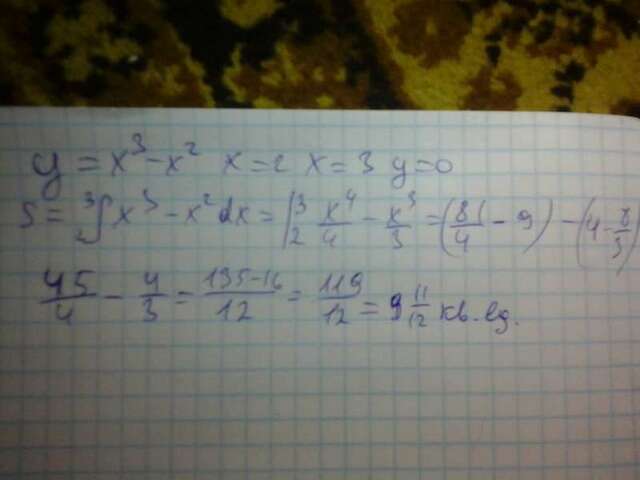 y = x³ - x² x = 2 x = 3 y = 0
S = ³∫₂ x³ - x² dx = |³₂ x⁴/4 - x³/3 = (81/4 - 9) - (4 - 8/3)
45/4 - 4/3 = (135-16)/12 = 119/12 = 9 11/12 кв. ед.